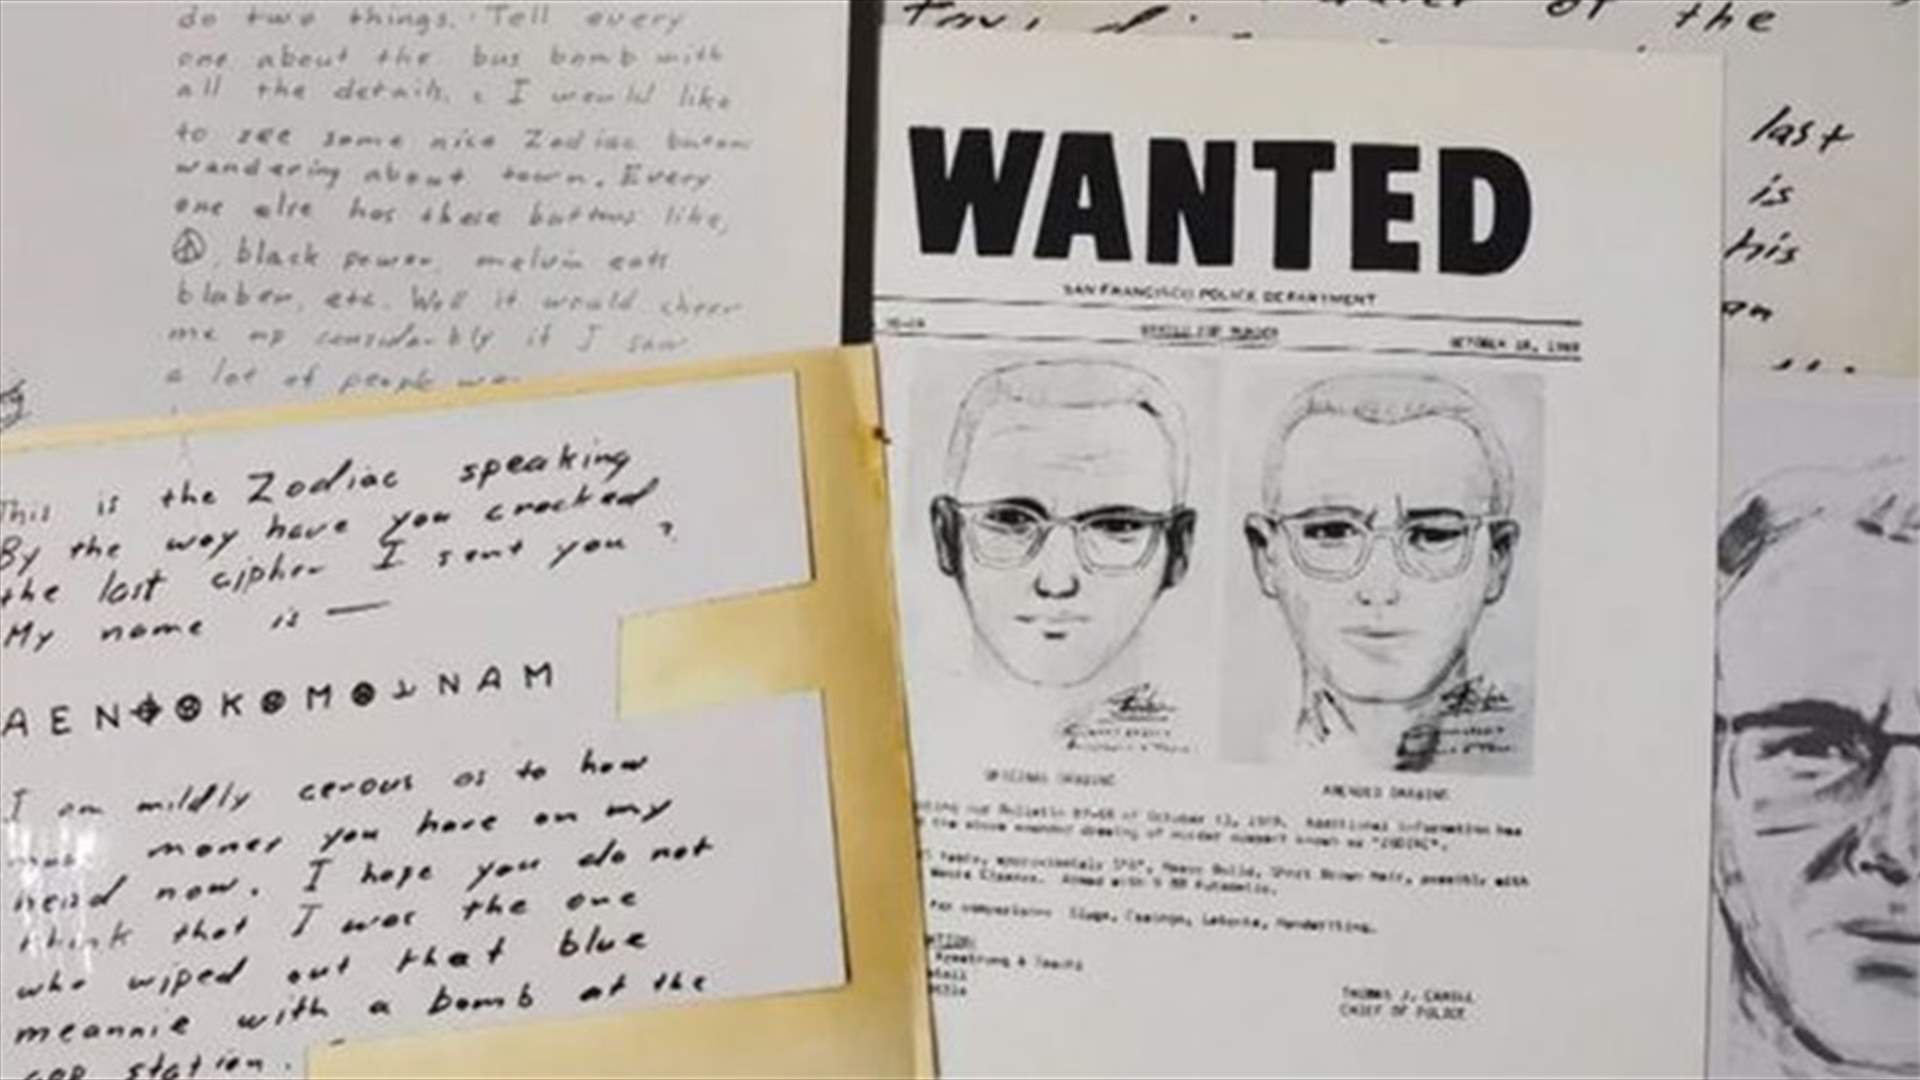 do two things. Tell every
one about the bus bomb with
all the details. I would like
to see some nice Zodiac butons
wandering about town. Every
one else has these buttons like,
, black power, melvin eats
blaber, etc. Well it would cheer
me up considerbly if I saw
a lot of people
This is the Zodiac speaking
By the way have you cracked
the last cipher I sent you ?
My name is —
A E N K M N A M
I am mildly cerous as to how
money you have on my
head now. I hope you do not
think that I was the one
who wiped out that blue
meannie with a bomb at the
cop station.
of the
last
is
this
an
WANTED
SAN FRANCISCO POLICE DEPARTMENT
WANTED FOR MURDER
OCTOBER 18, 1969
ORIGINAL DRAWING
AMENDED DRAWING
our Bulletin 87-69 of October 13, 1969. Additional information has
the above amended drawing of murder suspect known as "ZODIAC".
approximately 5'8", Heavy Build, Short Brown Hair, possibly with
Armed with 9 MM Automatic.
for comparison: Slugs, Casings, Latents, Handwriting.
Armstrong & Toschi
THOMAS J. CAHILL
CHIEF OF POLICE